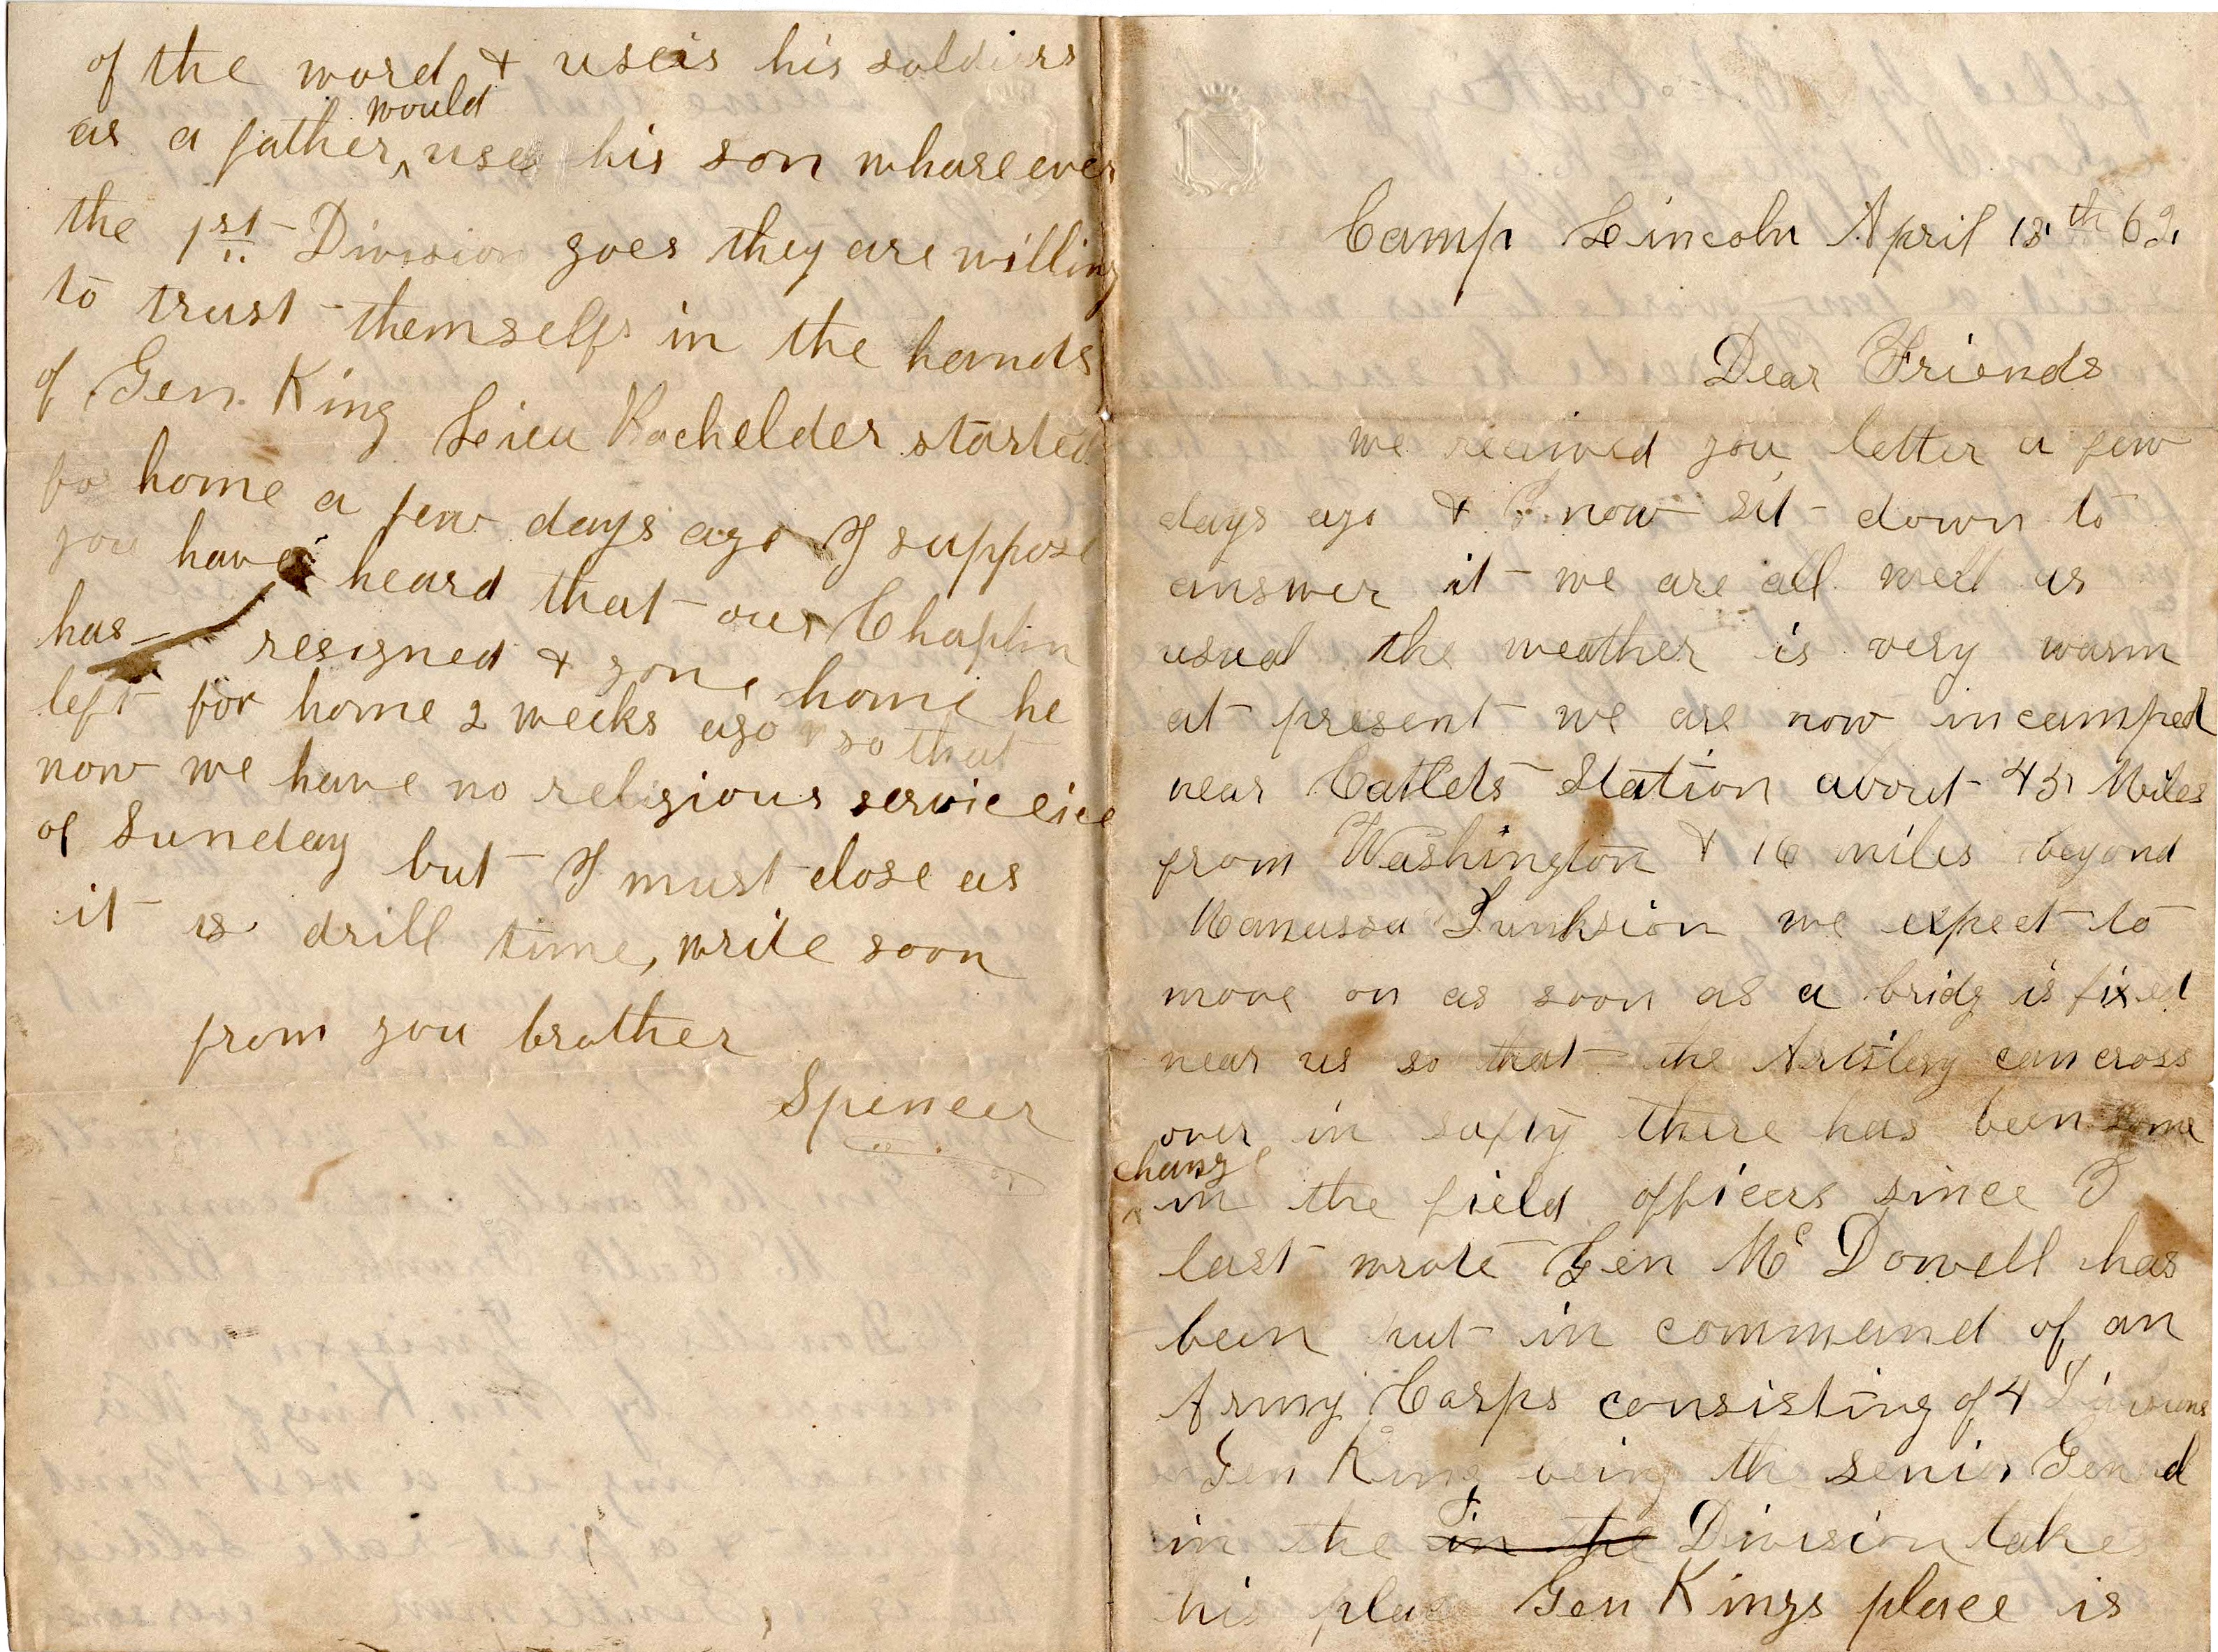 Camp Lincoln April 18th 62.
Dear Friends
we recived you letter a few
days ago & I now sit down to
answer it we are all well as
usual the weather is very warm
at present we are now incamped
near Catlets Station about 45 Miles
from Washington & 16 miles beyond
Manassa Junksion we expect to
move on as soon as a bridg is fixed
near us so that the Artilery can cross
over in safty there has been some
change
in the field officers since I
last wrote Gen Mc Dowell has
been put in command of an
Army Corps consisting of 4 Divisions
Gen King being the senior Genral
in the in the Division takes
his place Gen Kings place is
of the word & useis his soldiers
would
as a father ^ use his son whareever
the 1st Division goes they are willing
to trust themselfs in the hands
of Gen. King Lieu Bachelder started
for home a few days ago I suppose
you have heard that our Chaplin
has resigned & gone home he
left for home 2 weeks ago so that
now we have no religious serviceice
of Sunday but I must close as
it is drill time, write soon
from you brother
Spencer